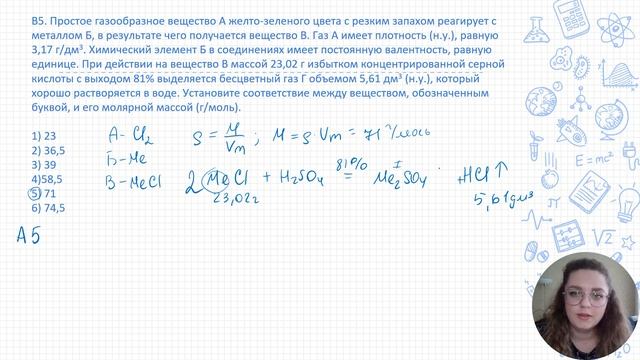 В5. Простое газообразное вещество А желто-зеленого цвета с резким запахом реагирует с
металлом Б, в результате чего получается вещество В. Газ А имеет плотность (н.у.), равную
3,17 г/дм³. Химический элемент Б в соединениях имеет постоянную валентность, равную
единице. При действии на вещество В массой 23,02 г избытком концентрированной серной
кислоты с выходом 81% выделяется бесцветный газ Г объемом 5,61 дм³ (н.у.), который
хорошо растворяется в воде. Установите соответствие между веществом, обозначенным
буквой, и его молярной массой (г/моль).
1) 23
2) 36,5
3) 39
4)58,5
5) 71
6) 74,5
А - Cl₂ ρ = M/Vm ; M = ρ · Vm = 71 г/моль
Б - Me
В - MeCl 2MeCl + H₂SO₄ 81% = Me₂SO₄ HCl↑
I
23,02г 5,61дм³
А5
E=mc²
√2